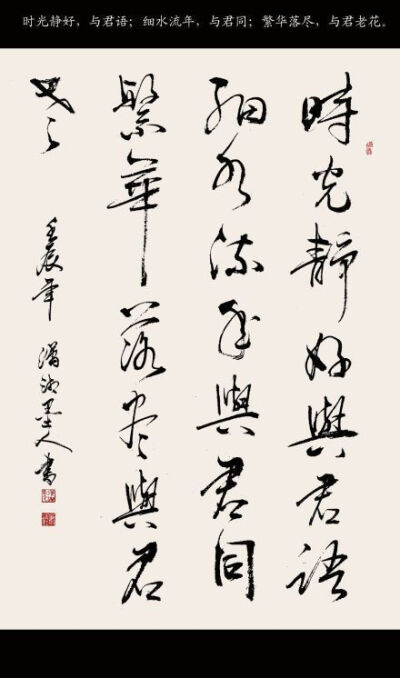 时光静好，与君语；细水流年，与君同；繁华落尽，与君老花。
時光靜好與君語
細水流年與君同
繁華落尽與君
老
壬辰年 潇湘墨人書